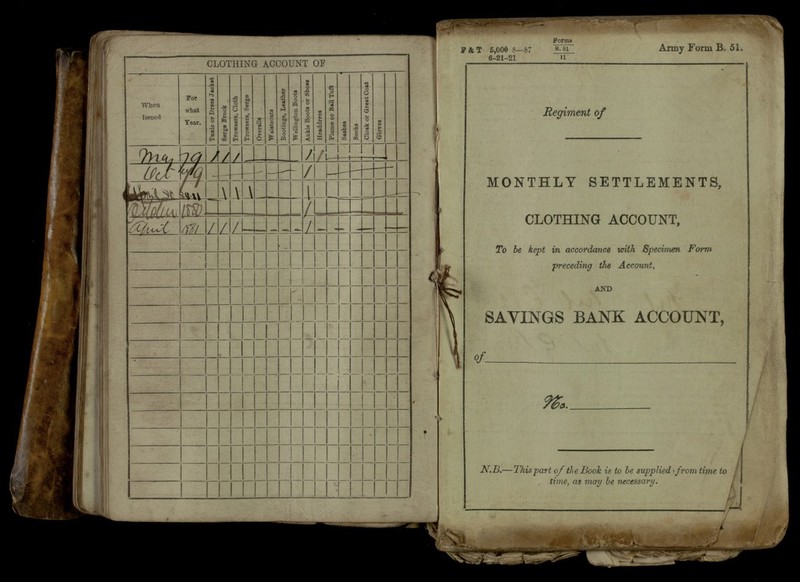 CLOTHING ACCOUNT OF
When Issued
For what Year.
Tunic or Dress Jacket
Serge Frock
Trowsers, Cloth
Trowsers, Serge
Overalls
Waistcoats
Bootings, Leather
Wellington Boots
Ankle Boots or Shoes
Headdress
Plume or Ball Tuft
Sashes
Busks
Cloak or Great Coat
Gloves
May 79 / / / — / /
Oct 79 — /
April 80 \ \ \ — \
October 1880 — /
April 1881 / / / — /
F & T 5,000 8—87
6-21-21
Forms
B. 51
11
Army Form B. 51.
Regiment of
MONTHLY SETTLEMENTS,
CLOTHING ACCOUNT,
To be kept in accordance with Specimen Form
preceding the Account,
AND
SAVINGS BANK ACCOUNT,
of
No.
N.B.—This part of the Book is to be supplied from time to
time, as may be necessary.